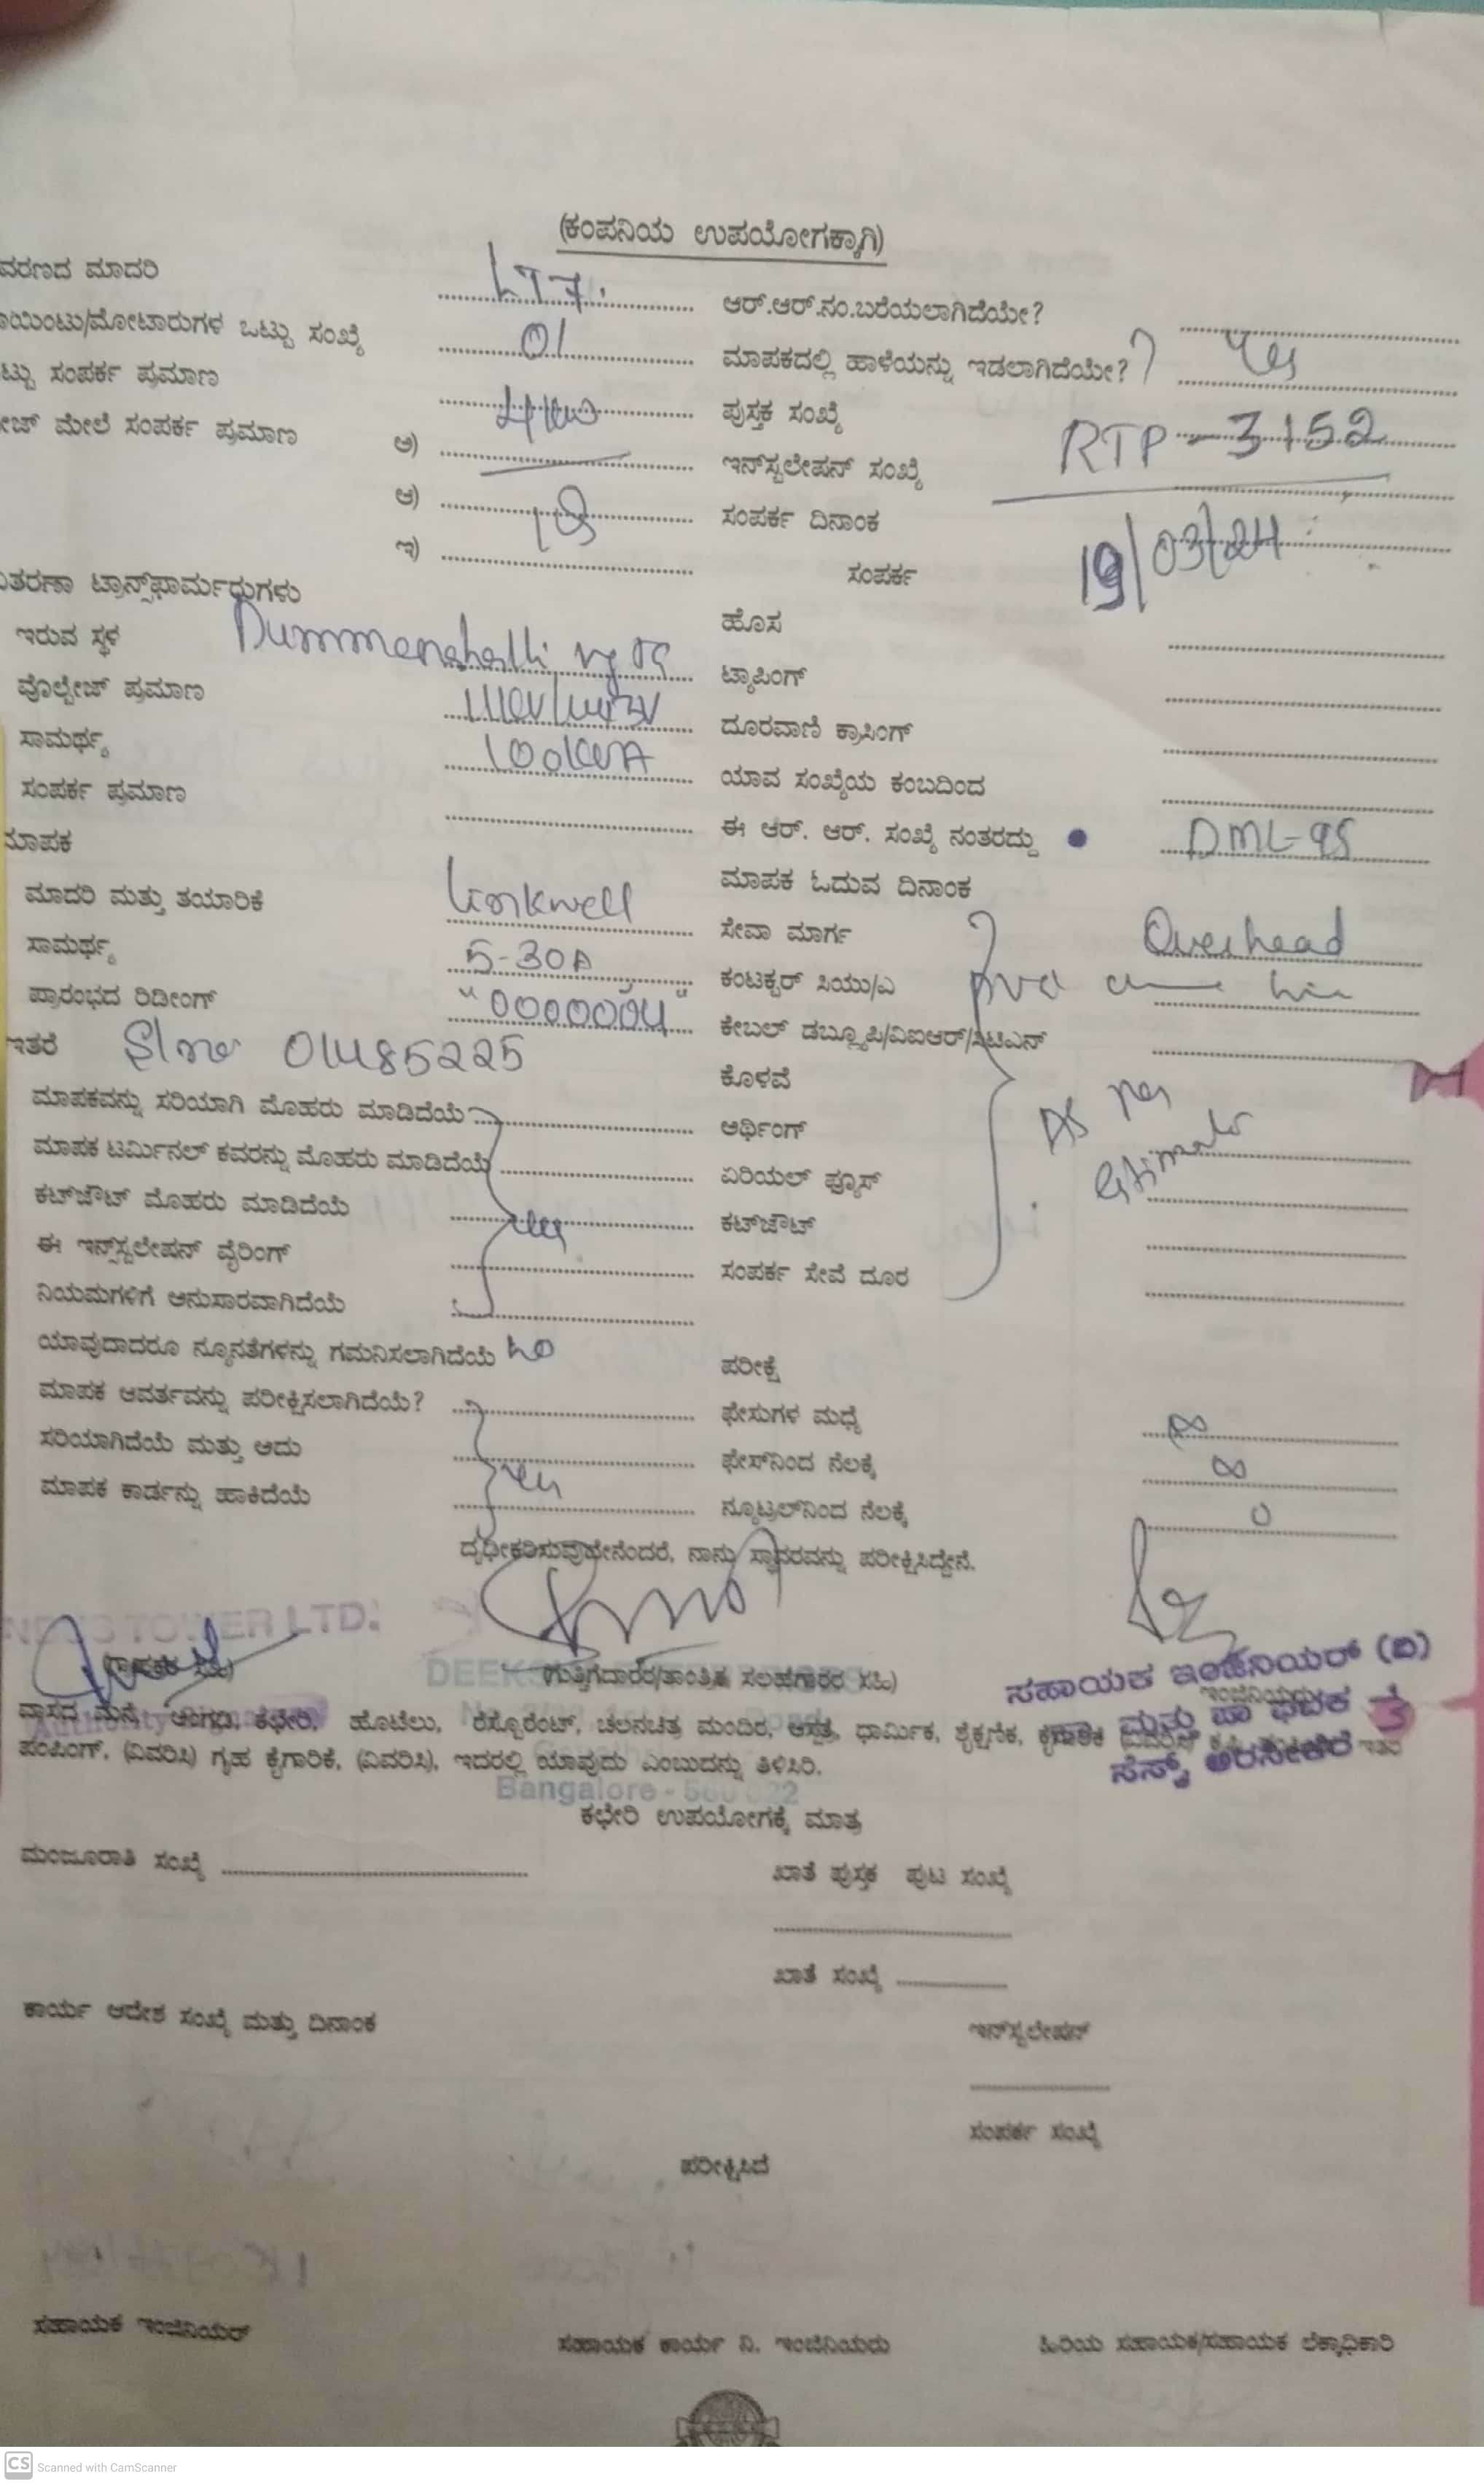 (ಕಂಪನಿಯ ಉಪಯೋಗಕ್ಕಾಗಿ)
ವರಣದ ಮಾದರಿ LT7. ಆರ್.ಆರ್.ನಂ.ಬರೆಯಲಾಗಿದೆಯೇ?
ಾಯಿಂಟು/ಮೋಟಾರುಗಳ ಒಟ್ಟು ಸಂಖ್ಯೆ 01 ಮಾಪಕದಲ್ಲಿ ಹಾಳೆಯನ್ನು ಇಡಲಾಗಿದೆಯೇ? Yes
ಟ್ಟು ಸಂಪರ್ಕ ಪ್ರಮಾಣ ಪುಸ್ತಕ ಸಂಖ್ಯೆ
ೇಜ್ ಮೇಲೆ ಸಂಪರ್ಕ ಪ್ರಮಾಣ ಅ) ಇನ್‌ಸ್ಟಲೇಷನ್ ಸಂಖ್ಯೆ RTP-3152
ಆ) ಸಂಪರ್ಕ ದಿನಾಂಕ 19/03/24
ಇ) ಸಂಪರ್ಕ
ಿತರಣಾ ಟ್ರಾನ್ಸ್‌ಫಾರ್ಮರ್‍ರುಗಳು
ಇರುವ ಸ್ಥಳ Dummenahalli ಹೊಸ
ವೊಲ್ಟೇಜ್ ಪ್ರಮಾಣ ಟ್ಯಾಪಿಂಗ್
ಸಾಮರ್ಥ್ಯ 100KVA ದೂರವಾಣಿ ಕ್ರಾಸಿಂಗ್
ಸಂಪರ್ಕ ಪ್ರಮಾಣ ಯಾವ ಸಂಖ್ಯೆಯ ಕಂಬದಿಂದ
ಮಾಪಕ ಈ ಆರ್. ಆರ್. ಸಂಖ್ಯೆ ನಂತರದ್ದು DML-95
ಮಾದರಿ ಮತ್ತು ತಯಾರಿಕೆ Linkwell ಮಾಪಕ ಓದುವ ದಿನಾಂಕ
ಸಾಮರ್ಥ್ಯ 5-30A ಸೇವಾ ಮಾರ್ಗ Overhead
ಪ್ರಾರಂಭದ ರಿಡೀಂಗ್ "0000004" ಕಂಟಕ್ಟರ್ ಸಿಯು/ಎ
ಇತರೆ Slno 01485225 ಕೇಬಲ್ ಡಬ್ಲ್ಯೂಪಿ/ವಿಐಆರ್/ಸಿಟಿಎನ್
ಕೊಳವೆ
ಮಾಪಕವನ್ನು ಸರಿಯಾಗಿ ಮೊಹರು ಮಾಡಿದೆಯೆ ಅರ್ಥಿಂಗ್ As per
ಮಾಪಕ ಟರ್ಮಿನಲ್ ಕವರನ್ನು ಮೊಹರು ಮಾಡಿದೆಯೆ ಏರಿಯಲ್ ಫ್ಯೂಸ್ Estimate
ಕಟ್‌ಔಟ್ ಮೊಹರು ಮಾಡಿದೆಯೆ yes ಕಟ್‌ಔಟ್
ಈ ಇನ್ಸ್‌ಸ್ಟಲೇಷನ್ ವೈರಿಂಗ್ ಸಂಪರ್ಕ ಸೇವೆ ದೂರ
ನಿಯಮಗಳಿಗೆ ಅನುಸಾರವಾಗಿದೆಯೆ
ಯಾವುದಾದರೂ ನ್ಯೂನತೆಗಳನ್ನು ಗಮನಿಸಲಾಗಿದೆಯೆ no ಪರೀಕ್ಷೆ
ಮಾಪಕ ಆವರ್ತವನ್ನು ಪರೀಕ್ಷಿಸಲಾಗಿದೆಯೆ? ಫೇಸುಗಳ ಮಧ್ಯೆ ∞
ಸರಿಯಾಗಿದೆಯೆ ಮತ್ತು ಅದು yes ಫೇಸ್‌ನಿಂದ ನೆಲಕ್ಕೆ ∞
ಮಾಪಕ ಕಾರ್ಡನ್ನು ಹಾಕಿದೆಯೆ ನ್ಯೂಟ್ರಲ್‌ನಿಂದ ನೆಲಕ್ಕೆ 0
ದೃಢೀಕರಿಸುವುದೇನೆಂದರೆ, ನಾನು ಸ್ಥಾವರವನ್ನು ಪರೀಕ್ಷಿಸಿದ್ದೇನೆ.
TOWER LTD.
(ಗ್ರಾಹಕರ ಸಹಿ) (ಗುತ್ತಿಗೆದಾರರ/ತಾಂತ್ರಿಕ ಸಲಹಗಾರರ ಸಹಿ)
ಸಹಾಯಕ ಇಂಜಿನಿಯರ್ (ವಿ)
ಮತ್ತು ಪಾ ಘಟಕ
ಸೆಸ್ಕ್, ಅರಸೀಕೆರೆ
ವಾಸದ ಮನೆ, ಅಂಗಡಿ, ಕಛೇರಿ, ಹೊಟೆಲು, ರೆಸ್ಟೊರೆಂಟ್, ಚಲನಚಿತ್ರ ಮಂದಿರ, ಆಸ್ಪತ್ರೆ, ಧಾರ್ಮಿಕ, ಶೈಕ್ಷಣಿಕ,
ಪಂಪಿಂಗ್, (ವಿವರಿಸಿ) ಗೃಹ ಕೈಗಾರಿಕೆ, (ವಿವರಿಸಿ), ಇದರಲ್ಲಿ ಯಾವುದು ಎಂಬುದನ್ನು ತಿಳಿಸಿರಿ.
Bangalore - 560 022
ಕಛೇರಿ ಉಪಯೋಗಕ್ಕೆ ಮಾತ್ರ
ಮಂಜೂರಾತಿ ಸಂಖ್ಯೆ ಖಾತೆ ಪುಸ್ತಕ ಪುಟ ಸಂಖ್ಯೆ
ಖಾತೆ ಸಂಖ್ಯೆ
ಕಾರ್ಯ ಆದೇಶ ಸಂಖ್ಯೆ ಮತ್ತು ದಿನಾಂಕ ಇನ್‌ಸ್ಟಲೇಷನ್
ಸಂಪರ್ಕ ಸಂಖ್ಯೆ
ಪರೀಕ್ಷಿಸಿದೆ
ಸಹಾಯಕ ಇಂಜಿನಿಯರ್ ಸಹಾಯಕ ಕಾರ್ಯ ನಿ. ಇಂಜಿನಿಯರು ಹಿರಿಯ ಸಹಾಯಕ/ಸಹಾಯಕ ಲೆಕ್ಕಾಧಿಕಾರಿ
CS Scanned with CamScanner